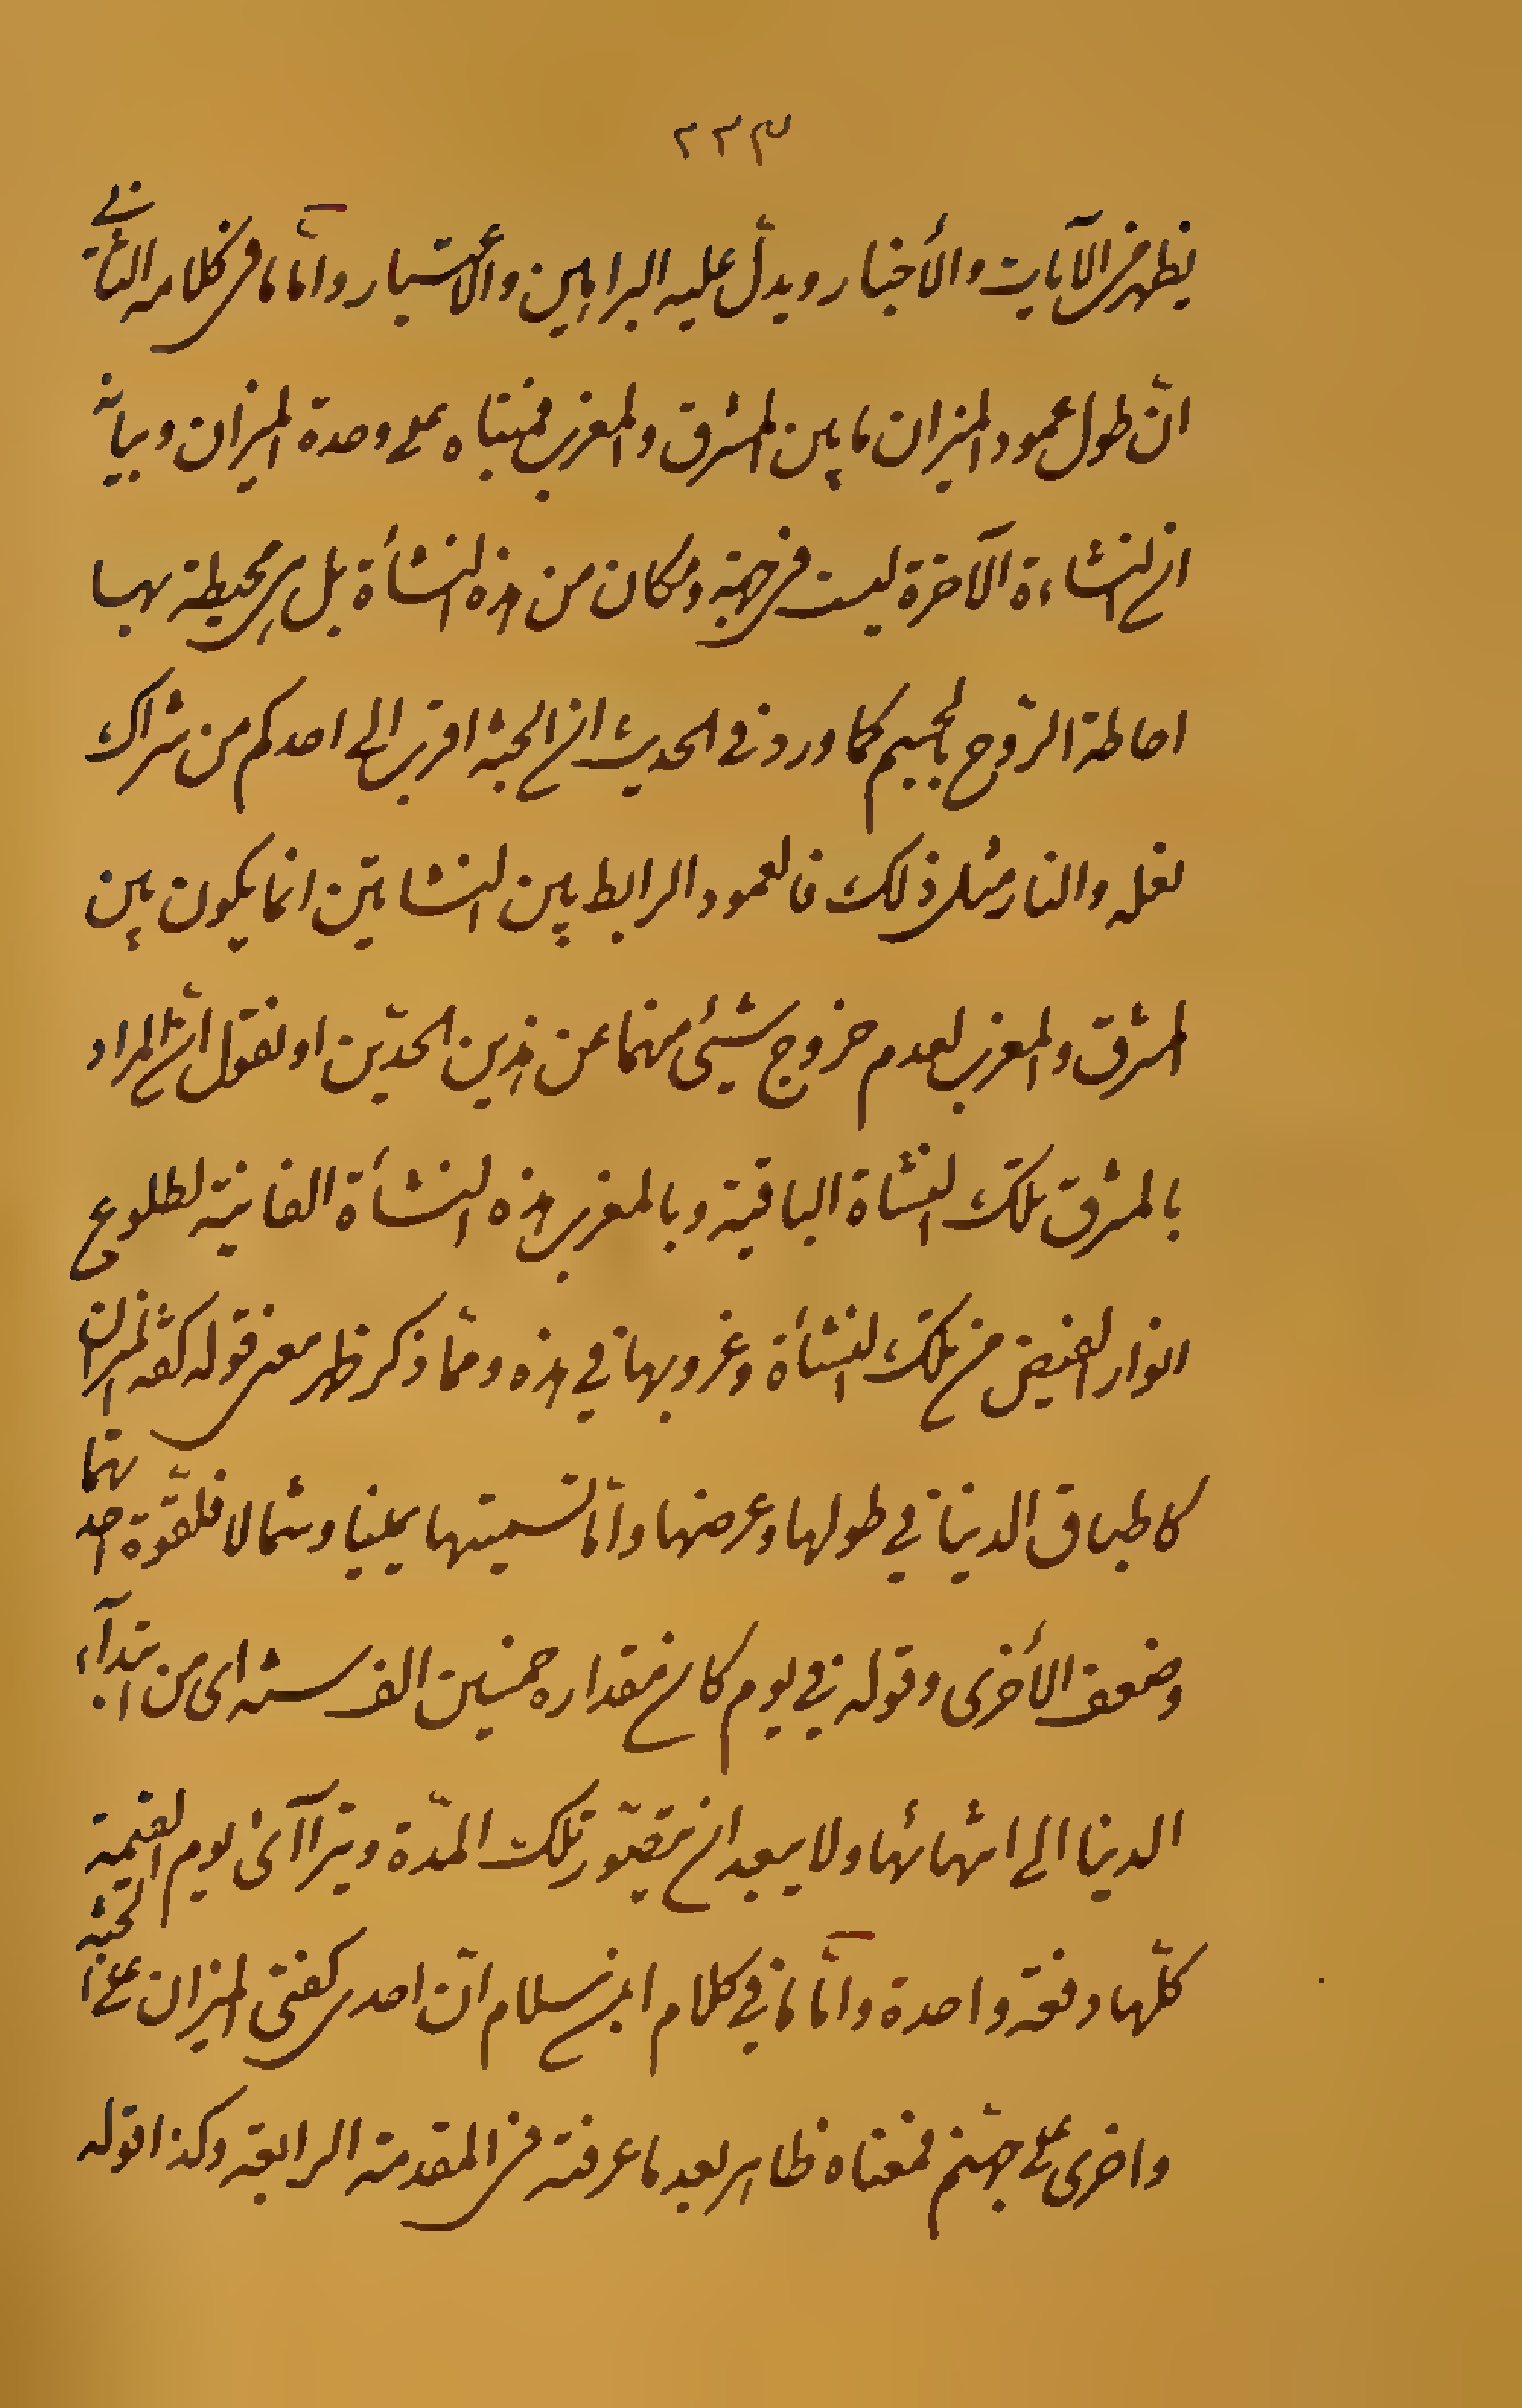 ٢٢٣
يظهر من الآيات والأخبار ويدلّ عليه البراهين والأعتبار وامّا ما فى كلامه الثانى
انّ طول عمود الميزان ما بين المشرق والمغرب فمبناه على وحدة الميزان وبيانه
ان النشاءة الآخرة ليست فى جهة ومكان من هذه النشأة بل هى محيطة بها
احاطة الرّوح بالجسم كما ورد فى الحديث ان الجنة اقرب الى احدكم من شراك
نعله والنار مثل ذلك فالعمود الرابط بين النشاتين انما يكون بين
المشرق والمغرب لعدم خروج شيئ منهما عن هذين الحدّين او نقول انّ المراد
بالمشرق تلك النشاة الباقية وبالمغرب هذه النشأة الفانية لطلوع
انوار الفيض من تلك النشأة وغروبها فى هذه وممّا ذكر ظهر معنى قوله كفّة الميزان
كاطباق الدنيا فى طولها وعرضها وامّا تسميتها يمينا وشمالا فلقوّة احديهما
وضعف الأخرى وقوله فى يوم كان مقداره خمسين الف سنة اى من ابتدآء
الدنيا الى انتهائها ولا يبعد ان يتصوّر تلك المدّة ويتراآى يوم القيمة
كلّها دفعة واحدة وامّا ما فى كلام ابن سلام انّ احدى كفتى الميزان على الجنة
واخرى على جهنّم فمعناه ظاهر بعد ما عرفته فى المقدمة الرابعة وكذا قوله